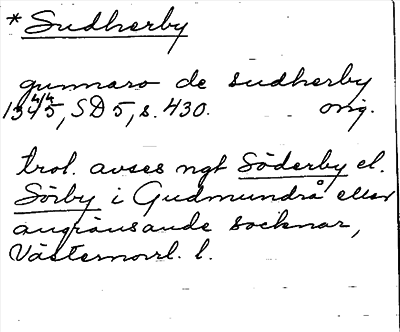 * Sudherby
gunnaro de sudherby
1345 4/4, SD 5, s. 430. orig.
trol. avses ngt Söderby el.
Sörby i Gudmundrå eller
angränsande socknar,
Västernorrl. l.